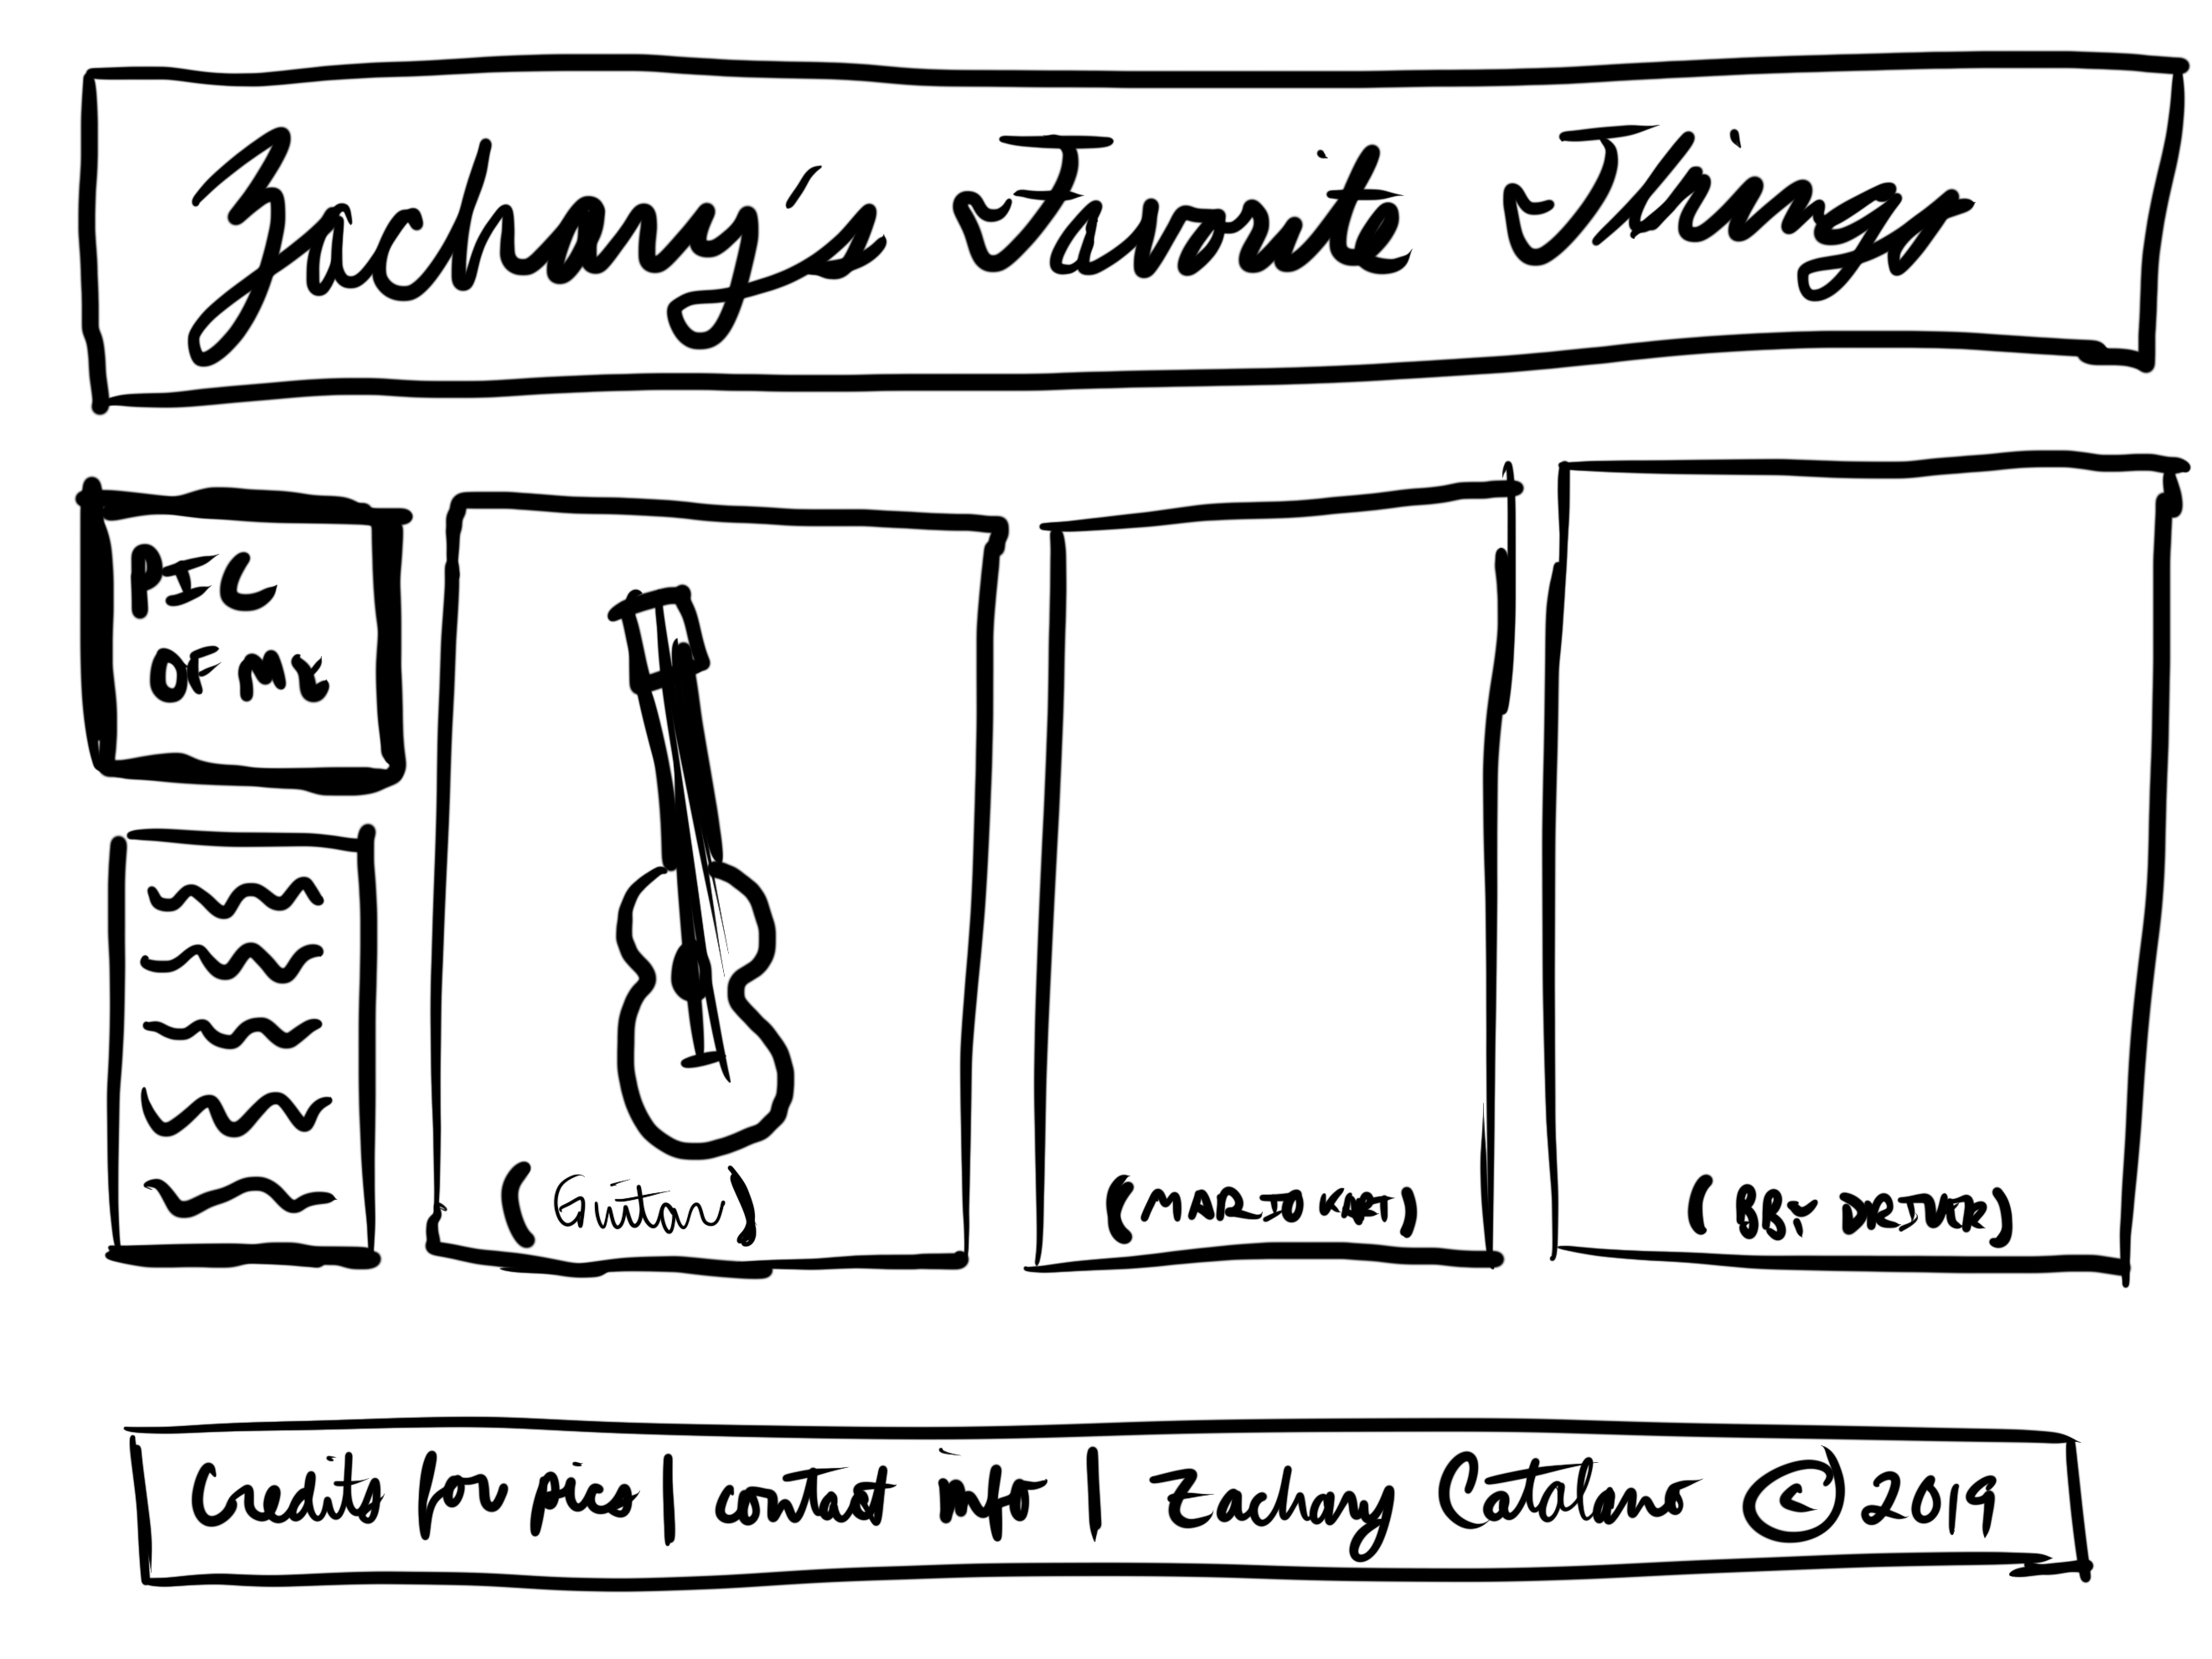 Zachary's Favorite Things
PIC
OF ME
(Guitar)
(MARIO KART)
(BBY DRIVER)
Credits for pics | contact info | Zachary Catalano © 2019